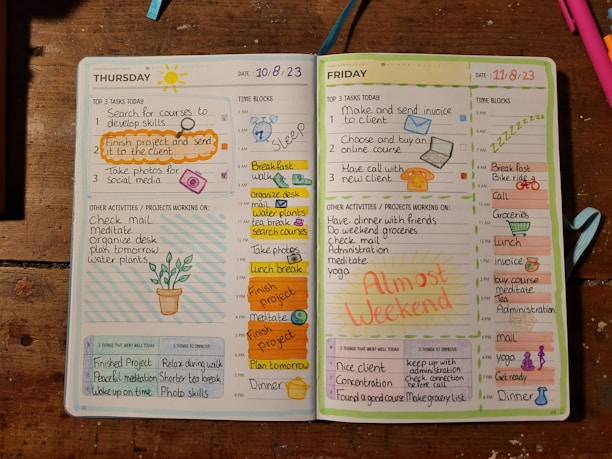 THURSDAY
DATE : 10/8/23
TOP 3 TASKS TODAY
1 Search for courses to
develop skills
2 Finish project and send
it to the client
3 Take photos for
social media
OTHER ACTIVITIES / PROJECTS WORKING ON:
check mail
Meditate
Organize desk
plan tomorrow
Water plants
3 THINGS THAT WENT WELL TODAY
Finished Project
Peaceful meditation
Woke up on time
3 THINGS TO IMPROVE
Relax during walk
Shorter tea break
Photo skills
TIME BLOCKS
Sleep
Breakfast
walk
organize desk
mail
Water plants
tea break
search courses
Take photos
Lunch break
Finish
project
Meditate
Finish
project
Plan tomorrow
Dinner
FRIDAY
DATE : 11/8/23
TOP 3 TASKS TODAY
1 Make and send invoice
to client
2 Choose and buy an
online course
3 Have call with
new client
OTHER ACTIVITIES / PROJECTS WORKING ON:
Have dinner with friends
Do weekend groceries
check mail
Administration
meditate
yoga
Almost
Weekend
3 THINGS THAT WENT WELL TODAY
Nice client
Concentration
Found a good course
3 THINGS TO IMPROVE
keep up with
administration
Check connection
before call
Make grocery List
TIME BLOCKS
Breakfast
Bike ride
Call
Groceries
Lunch
invoice
buy course
meditate
Tea
Administration
mail
yoga
Get ready
Dinner